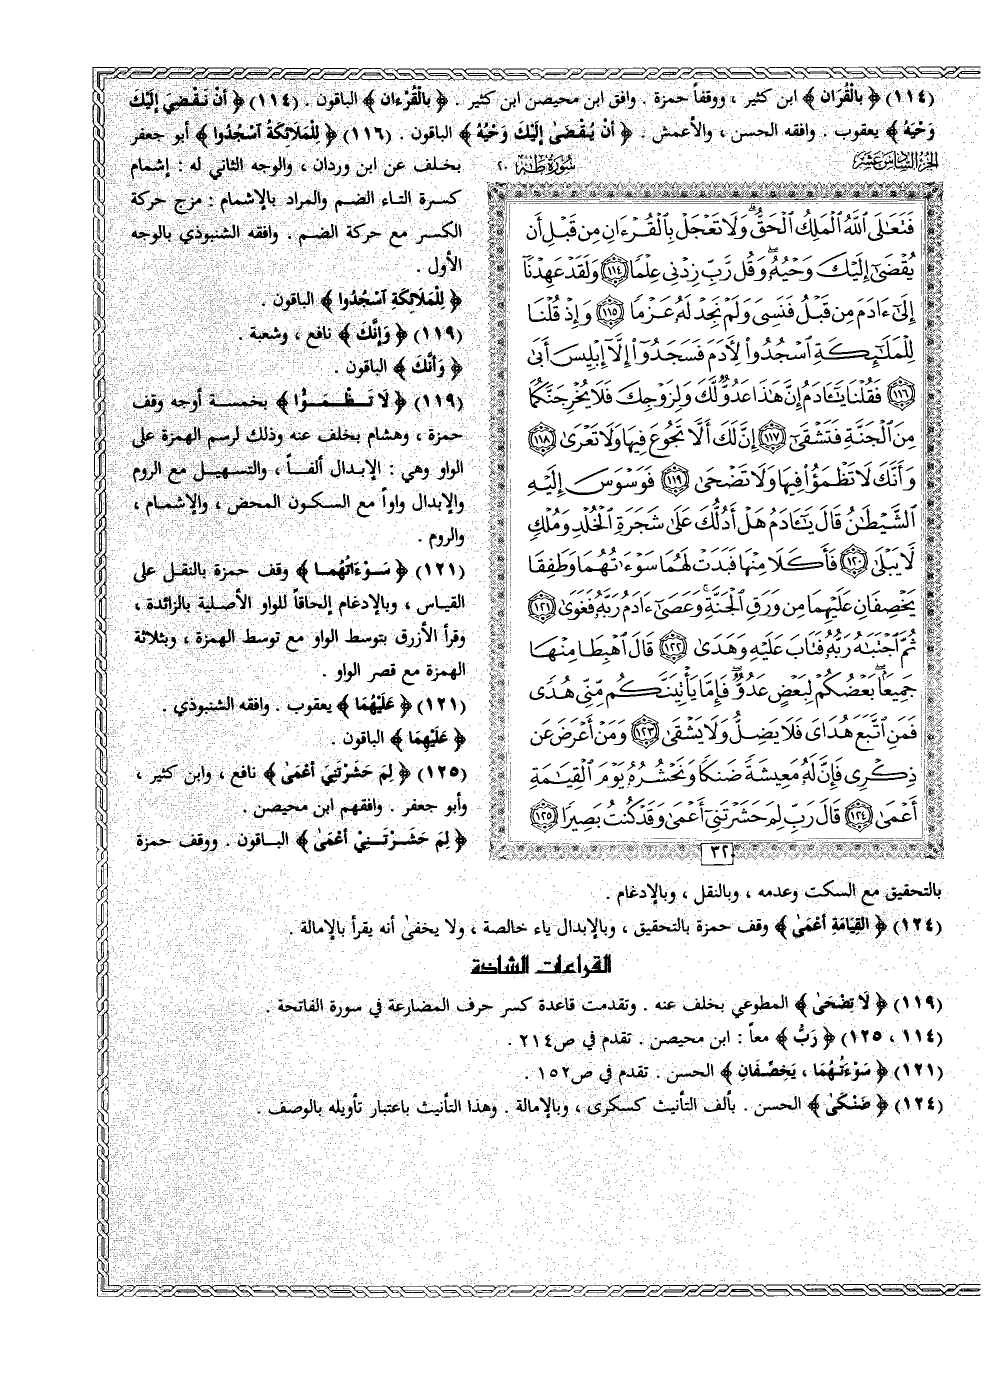 (١١٤) ﴿ بِالْقُرَانِ ﴾ ابن كثير ، ووقفاً حمزة . وافق ابن محيصن ابن كثير . ﴿ بِالْقُرْءَانِ ﴾ الباقون . (١١٤) ﴿ أَنْ نَقْضِيَ إِلَيْكَ
وَحْيَهُ ﴾ يعقوب . وافقه الحسن ، والأعمش . ﴿ أَنْ يُقْضَىٰ إِلَيْكَ وَحْيُهُ ﴾ الباقون . (١١٦) ﴿ لِلْمَلَائِكَةُ اسْجُدُوا ﴾ أبو جعفر
الجزء السادس عشر
سورة طه ٢٠
بخلف عن ابن وردان ، والوجه الثاني له : إشمام
كسرة التاء الضم والمراد بالإشمام : مزج حركة
الكسر مع حركة الضم . وافقه الشنبوذي بالوجه
الأول .
﴿ لِلْمَلَائِكَةِ اسْجُدُوا ﴾ الباقون .
(١١٩) ﴿ وَإِنَّكَ ﴾ نافع ، وشعبة .
﴿ وَأَنَّكَ ﴾ الباقون .
(١١٩) ﴿ لَا تَظْمَؤُا ﴾ بخمسة أوجه وقف
حمزة ، وهشام بخلف عنه وذلك لرسم الهمزة على
الواو وهي : الإبدال ألفاً ، والتسهيل مع الروم
والإبدال واواً مع السكون المحض ، والإشمام ،
والروم .
(١٢١) ﴿ سَوْءَاتُهُمَا ﴾ وقف حمزة بالنقل على
القياس ، وبالإدغام إلحاقاً للواو الأصلية بالزائدة ،
وقرأ الأزرق بتوسط الواو مع توسط الهمزة ، وبثلاثة
الهمزة مع قصر الواو .
(١٢١) ﴿ عَلَيْهُمَا ﴾ يعقوب . وافقه الشنبوذي .
﴿ عَلَيْهِمَا ﴾ الباقون .
(١٢٥) ﴿ لِمَ حَشَرْتَنِيَ أَعْمَىٰ ﴾ نافع ، وابن كثير ،
وأبو جعفر . وافقهم ابن محيصن .
﴿ لِمَ حَشَرْتَنِيْ أَعْمَىٰ ﴾ الباقون . ووقف حمزة
فَتَعَـٰلَى ٱللَّهُ ٱلْمَلِكُ ٱلْحَقُّ ۗ وَلَا تَعْجَلْ بِٱلْقُرْءَانِ مِن قَبْلِ أَن
يُقْضَىٰٓ إِلَيْكَ وَحْيُهُۥ ۖ وَقُل رَّبِّ زِدْنِى عِلْمًا ١١٤ وَلَقَدْ عَهِدْنَآ
إِلَىٰٓ ءَادَمَ مِن قَبْلُ فَنَسِىَ وَلَمْ نَجِدْ لَهُۥ عَزْمًا ١١٥ وَإِذْ قُلْنَا
لِلْمَلَـٰٓئِكَةِ ٱسْجُدُوا۟ لِـَٔادَمَ فَسَجَدُوٓا۟ إِلَّآ إِبْلِيسَ أَبَىٰ
١١٦ فَقُلْنَا يَـٰٓـَٔادَمُ إِنَّ هَـٰذَا عَدُوٌّ لَّكَ وَلِزَوْجِكَ فَلَا يُخْرِجَنَّكُمَا
مِنَ ٱلْجَنَّةِ فَتَشْقَىٰٓ ١١٧ إِنَّ لَكَ أَلَّا تَجُوعَ فِيهَا وَلَا تَعْرَىٰ ١١٨
وَأَنَّكَ لَا تَظْمَؤُا۟ فِيهَا وَلَا تَضْحَىٰ ١١٩ فَوَسْوَسَ إِلَيْهِ
ٱلشَّيْطَـٰنُ قَالَ يَـٰٓـَٔادَمُ هَلْ أَدُلُّكَ عَلَىٰ شَجَرَةِ ٱلْخُلْدِ وَمُلْكٍ
لَّا يَبْلَىٰ ١٢٠ فَأَكَلَا مِنْهَا فَبَدَتْ لَهُمَا سَوْءَٰتُهُمَا وَطَفِقَا
يَخْصِفَانِ عَلَيْهِمَا مِن وَرَقِ ٱلْجَنَّةِ ۚ وَعَصَىٰٓ ءَادَمُ رَبَّهُۥ فَغَوَىٰ ١٢١
ثُمَّ ٱجْتَبَـٰهُ رَبُّهُۥ فَتَابَ عَلَيْهِ وَهَدَىٰ ١٢٢ قَالَ ٱهْبِطَا مِنْهَا
جَمِيعًۢا ۖ بَعْضُكُمْ لِبَعْضٍ عَدُوٌّ ۖ فَإِمَّا يَأْتِيَنَّكُم مِّنِّى هُدًى
فَمَنِ ٱتَّبَعَ هُدَاىَ فَلَا يَضِلُّ وَلَا يَشْقَىٰ ١٢٣ وَمَنْ أَعْرَضَ عَن
ذِكْرِى فَإِنَّ لَهُۥ مَعِيشَةً ضَنكًا وَنَحْشُرُهُۥ يَوْمَ ٱلْقِيَـٰمَةِ
أَعْمَىٰ ١٢٤ قَالَ رَبِّ لِمَ حَشَرْتَنِىٓ أَعْمَىٰ وَقَدْ كُنتُ بَصِيرًا ١٢٥
٣٢
بالتحقيق مع السكت وعدمه ، وبالنقل ، وبالإدغام .
(١٢٤) ﴿ الْقِيَامَةِ أَعْمَىٰ ﴾ وقف حمزة بالتحقيق ، وبالإبدال ياء خالصة ، ولا يخفىٰ أنه يقرأ بالإمالة .
القراءات الشاذة
(١١٩) ﴿ لَا تِضْحَىٰ ﴾ المطوعي بخلف عنه . وتقدمت قاعدة كسر حرف المضارعة في سورة الفاتحة .
(١١٤ ، ١٢٥) ﴿ رَبُّ ﴾ معاً : ابن محيصن . تقدم في ص٢١٤ .
(١٢١) ﴿ سَوْءَتُهُمَا ، يَخِصِّفَانِ ﴾ الحسن . تقدم في ص١٥٢ .
(١٢٤) ﴿ ضَنْكَىٰ ﴾ الحسن . بألف التأنيث كسكرى ، وبالإمالة . وهذا التأنيث باعتبار تأويله بالوصف .